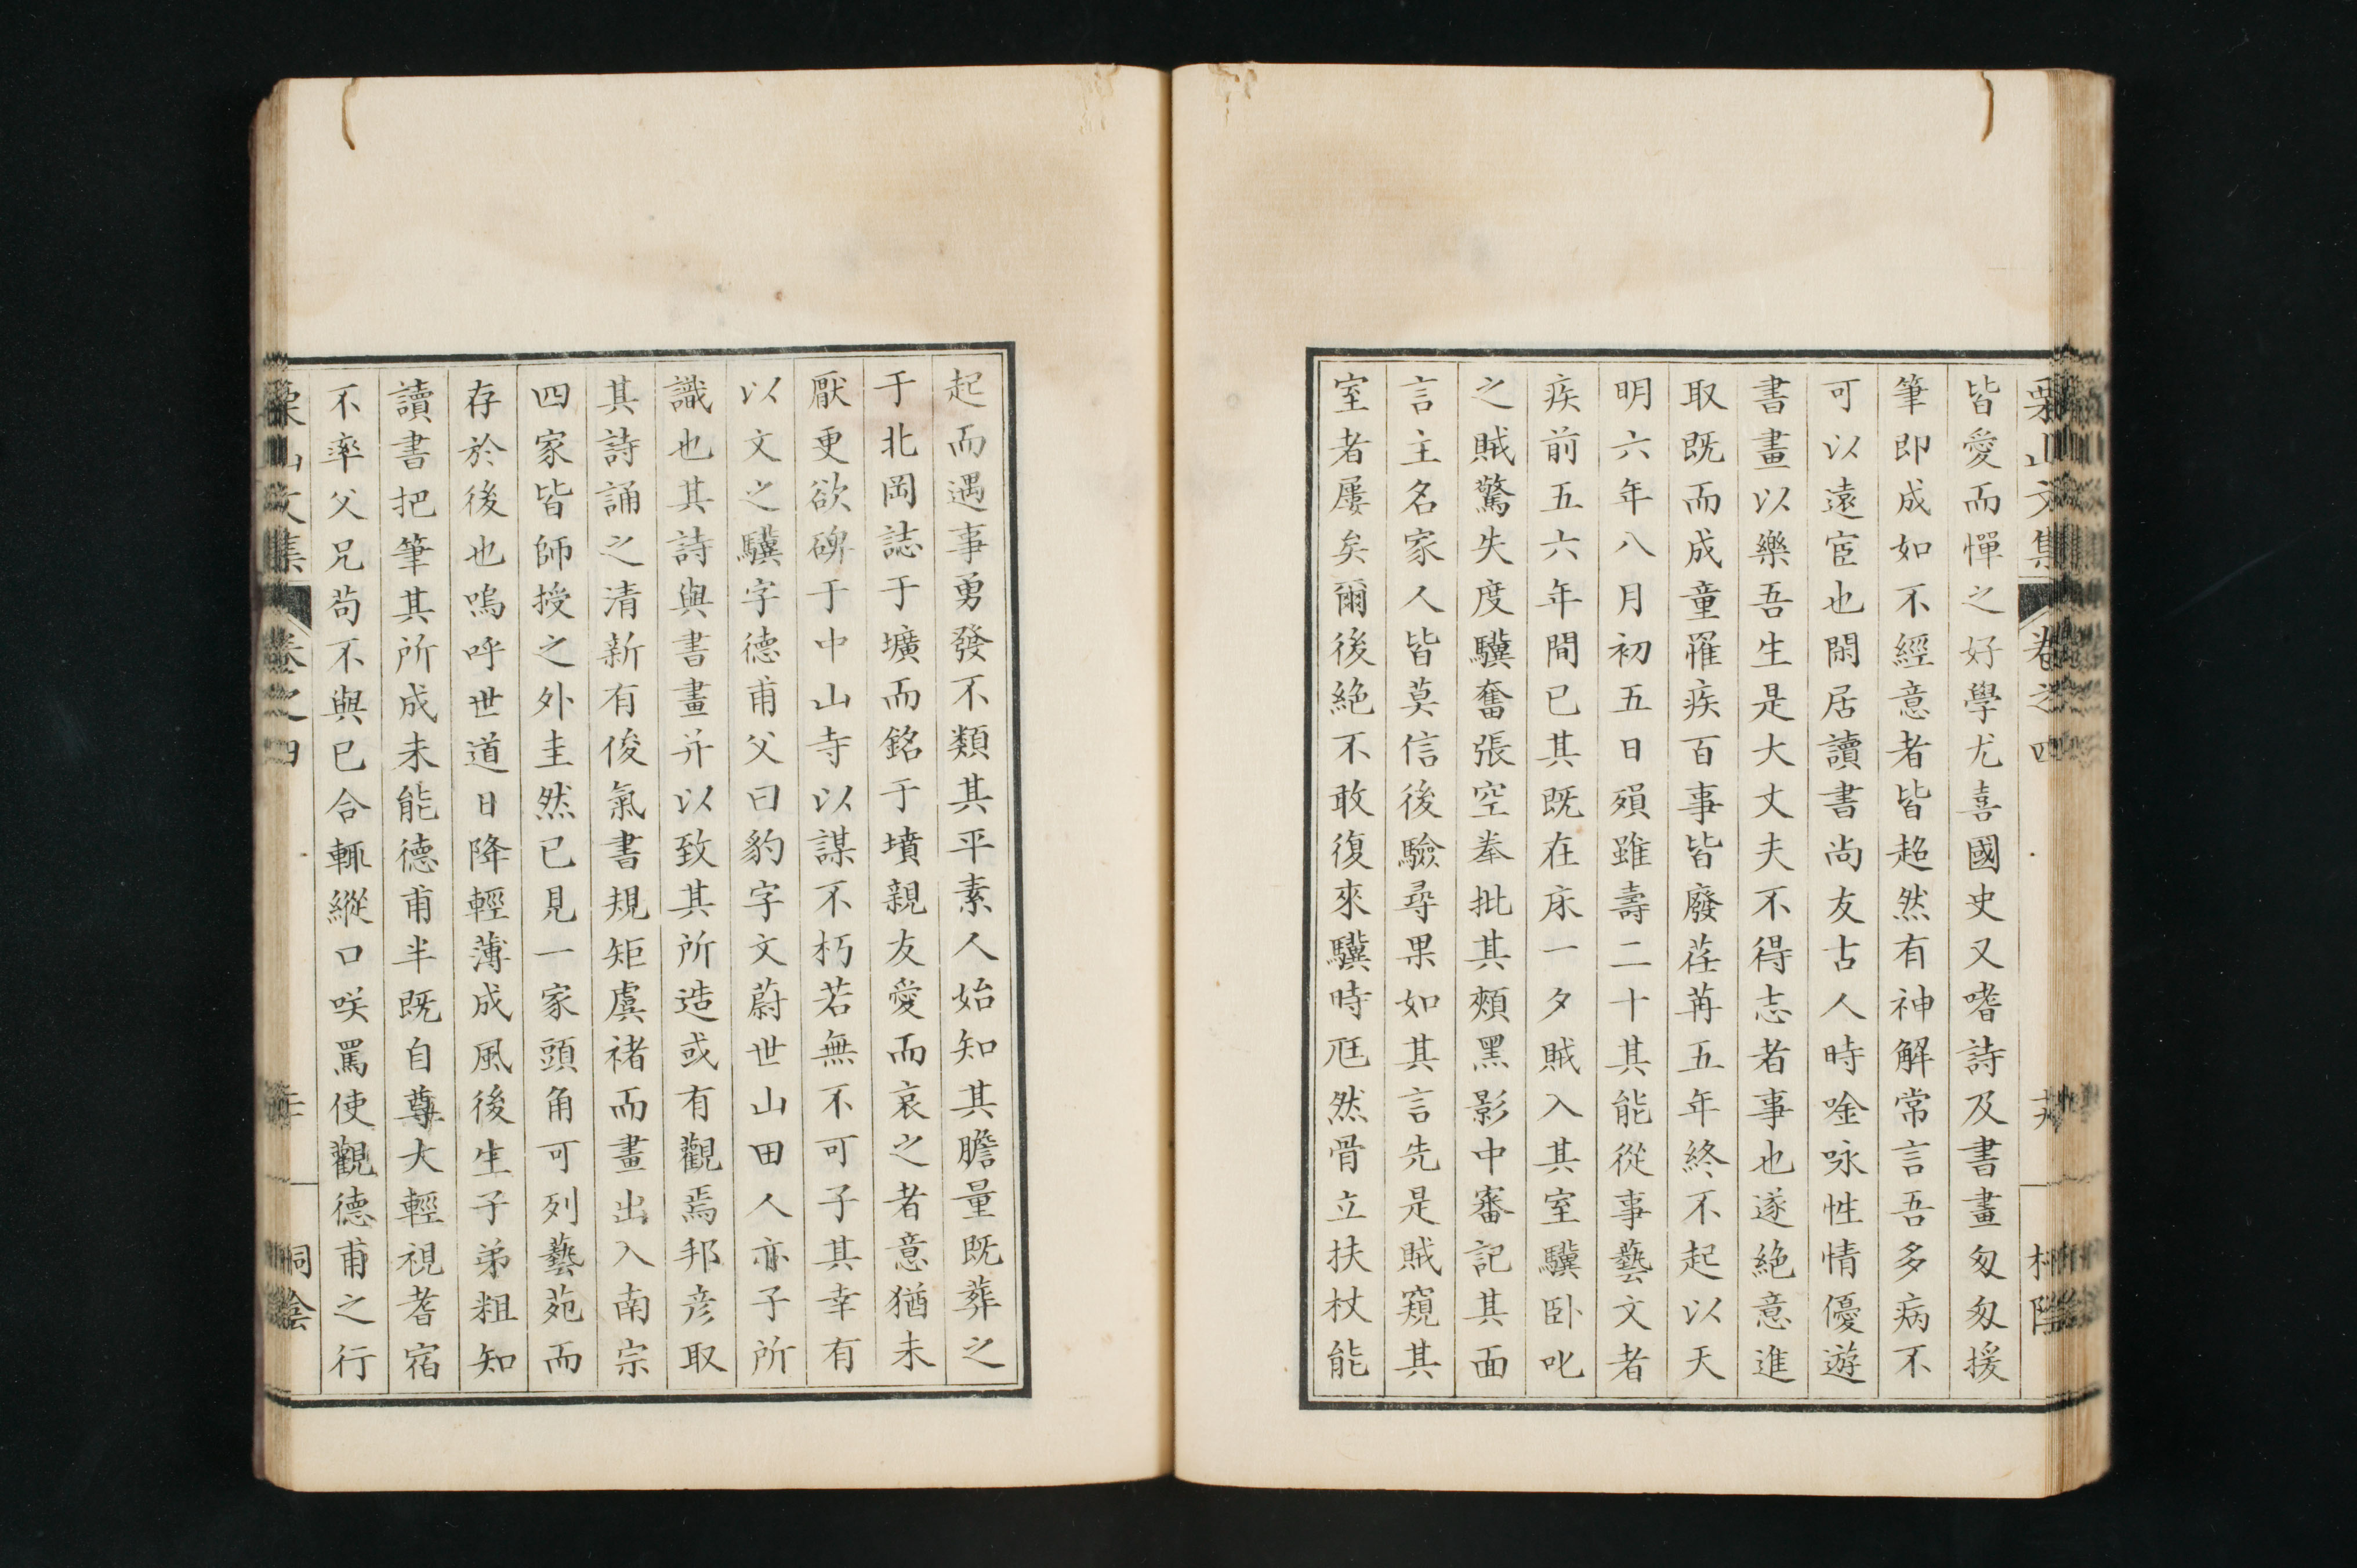 栗山文集 卷之四
皆愛而憚之好學尤喜國史又嗜詩及書畫匆匆援
筆即成如不經意者皆超然有神解常言吾多病不
可以遠宦也閑居讀書尚友古人時唫咏性情優遊
書畫以樂吾生是大丈夫不得志者事也遂絕意進
取既而成童罹疾百事皆廢荏苒五年終不起以天
明六年八月初五日殞雖壽二十其能從事藝文者
疾前五六年間已其既在床一夕賊入其室驥卧叱
之賊驚失度驥奮張空拳批其頰黑影中審記其面
言主名家人皆莫信後驗尋果如其言先是賊窺其
室者屢矣爾後絕不敢復來驥時尫然骨立扶杖能
起而遇事勇發不類其平素人始知其膽量既葬之
于北岡誌于壙而銘于墳親友愛而哀之者意猶未
厭更欲碑于中山寺以謀不朽若無不可子其幸有
以文之驥字德甫父曰豹字文蔚世山田人亦子所
識也其詩與書畫并以致其所造或有觀焉邦彦取
其詩誦之清新有俊氣書規矩虞褚而畫出入南宗
四家皆師授之外圭然已見一家頭角可列藝苑而
存於後也嗚呼世道日降輕薄成風後生子弟粗知
讀書把筆其所成未能德甫半既自尊大輕視耆宿
不率父兄苟不與已合輒縱口咲罵使觀德甫之行
栗山文集 卷之四 桐陰